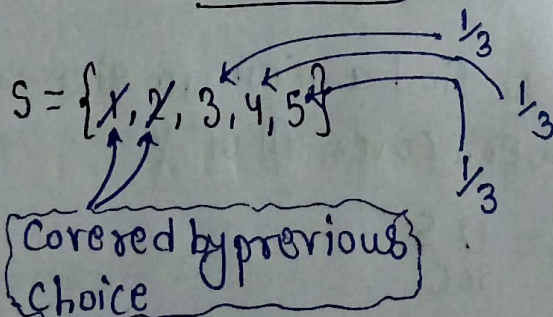 1/3
S = {1, 2, 3, 4, 5}
1/3
1/3
Covered by previous
choice